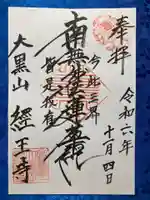 奉拝
令和六年
十月四日
今此三界
南無妙法蓮華経
皆是我有
大黒山
經王寺